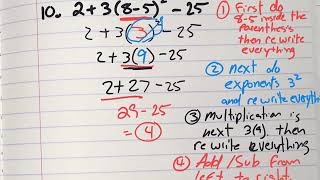 10. 2 + 3(8-5)² - 25
2 + 3(3)² - 25
2 + 3(9) - 25
2 + 27 - 25
29 - 25
= 4
① First do
8-5 inside the
parenthesis
then rewrite
everything
② next do
exponents 3²
and rewrite everything
③ Multiplication is
next 3(9) then
rewrite everything
④ Add/Sub from
left to right